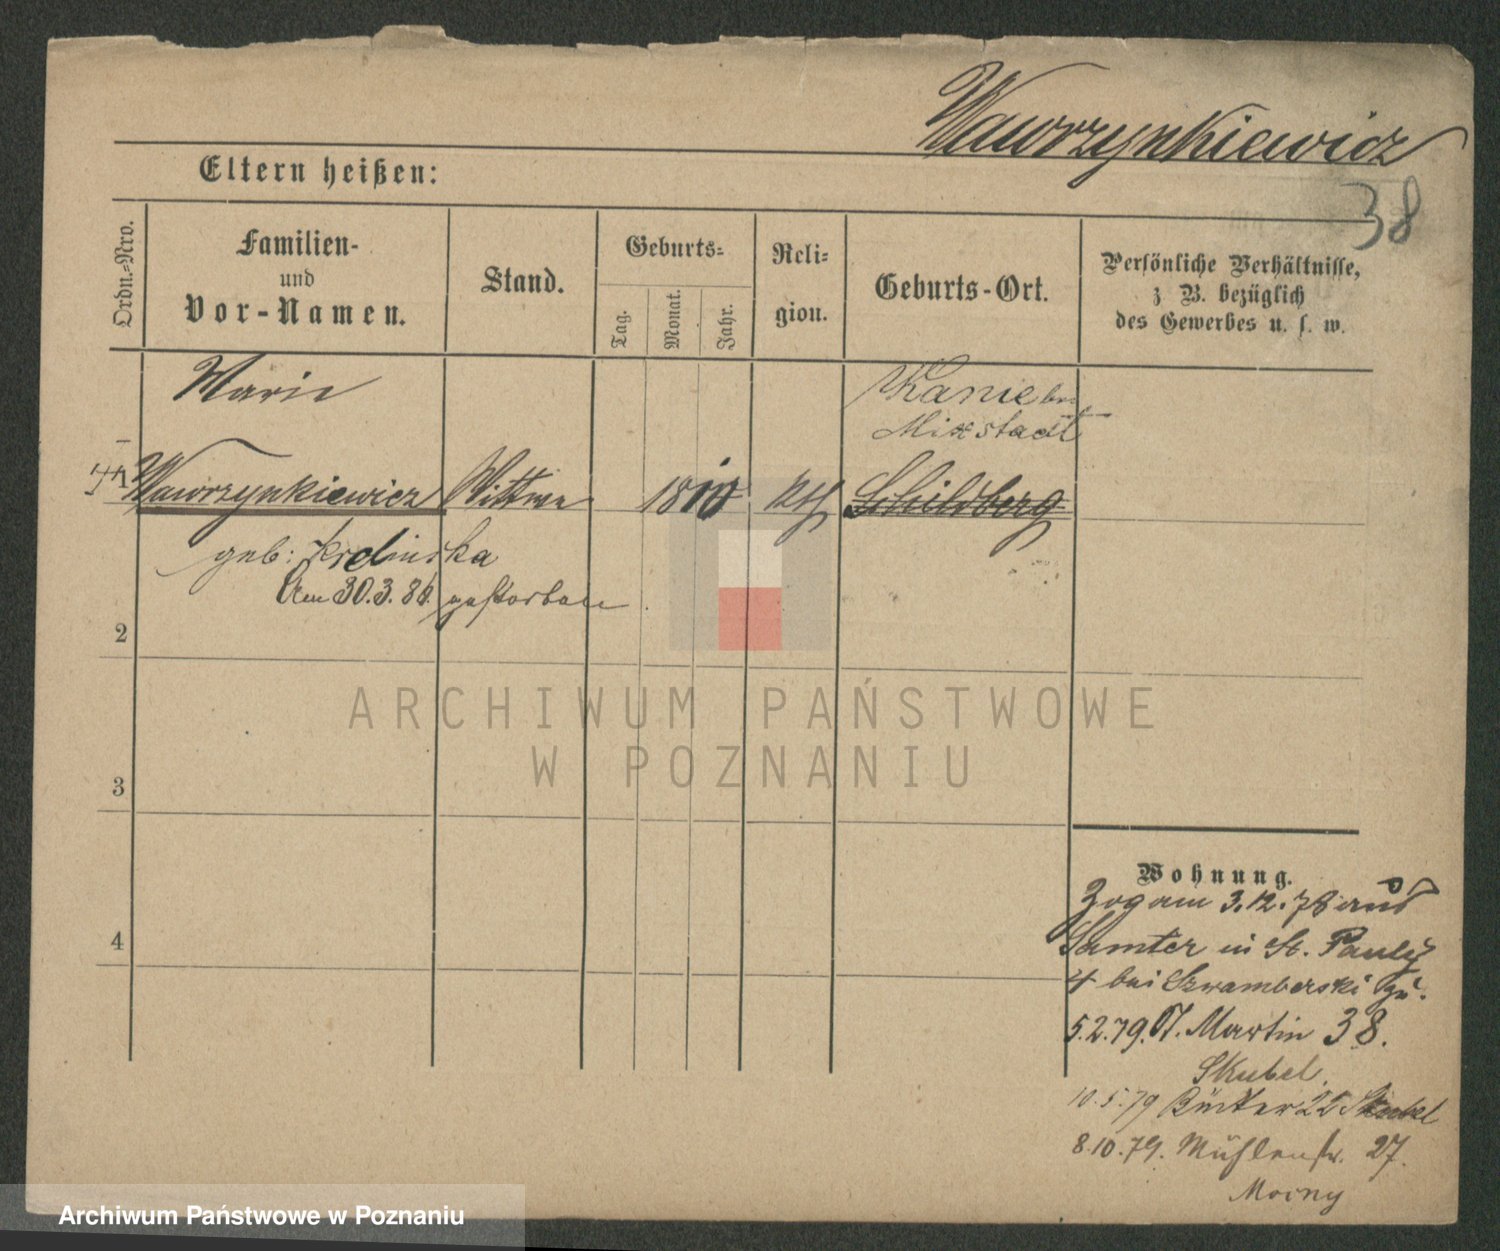 Wawrzynkiewicz
38
Eltern heißen:
Ordn.=Nro.
Familien-
und
Vor-Namen.
Stand.
Geburts=
Tag.
Monat.
Jahr.
Reli=
gion.
Geburts-Ort.
Persönliche Verhältnisse,
z B. bezüglich
des Gewerbes u. s. w.
Marie
Kanie bei
Mixstadt
Wawrzynkiewicz Wittwe 1810 Kth Schildberg
geb:
Am 30.3.86. gestorben
2
3
4
Wohnung.
Zog am 3.12.78 aus
Samter in St. Pauly
4 bei Szwamberski zu.
5.2.79. St. Martin 38.
Skubel.
10.5.79 Büttel 22 Skubel
8.10.79. Mühlenstr. 27.
ARCHIWUM PAŃSTWOWE
W POZNANIU
Archiwum Państwowe w Poznaniu